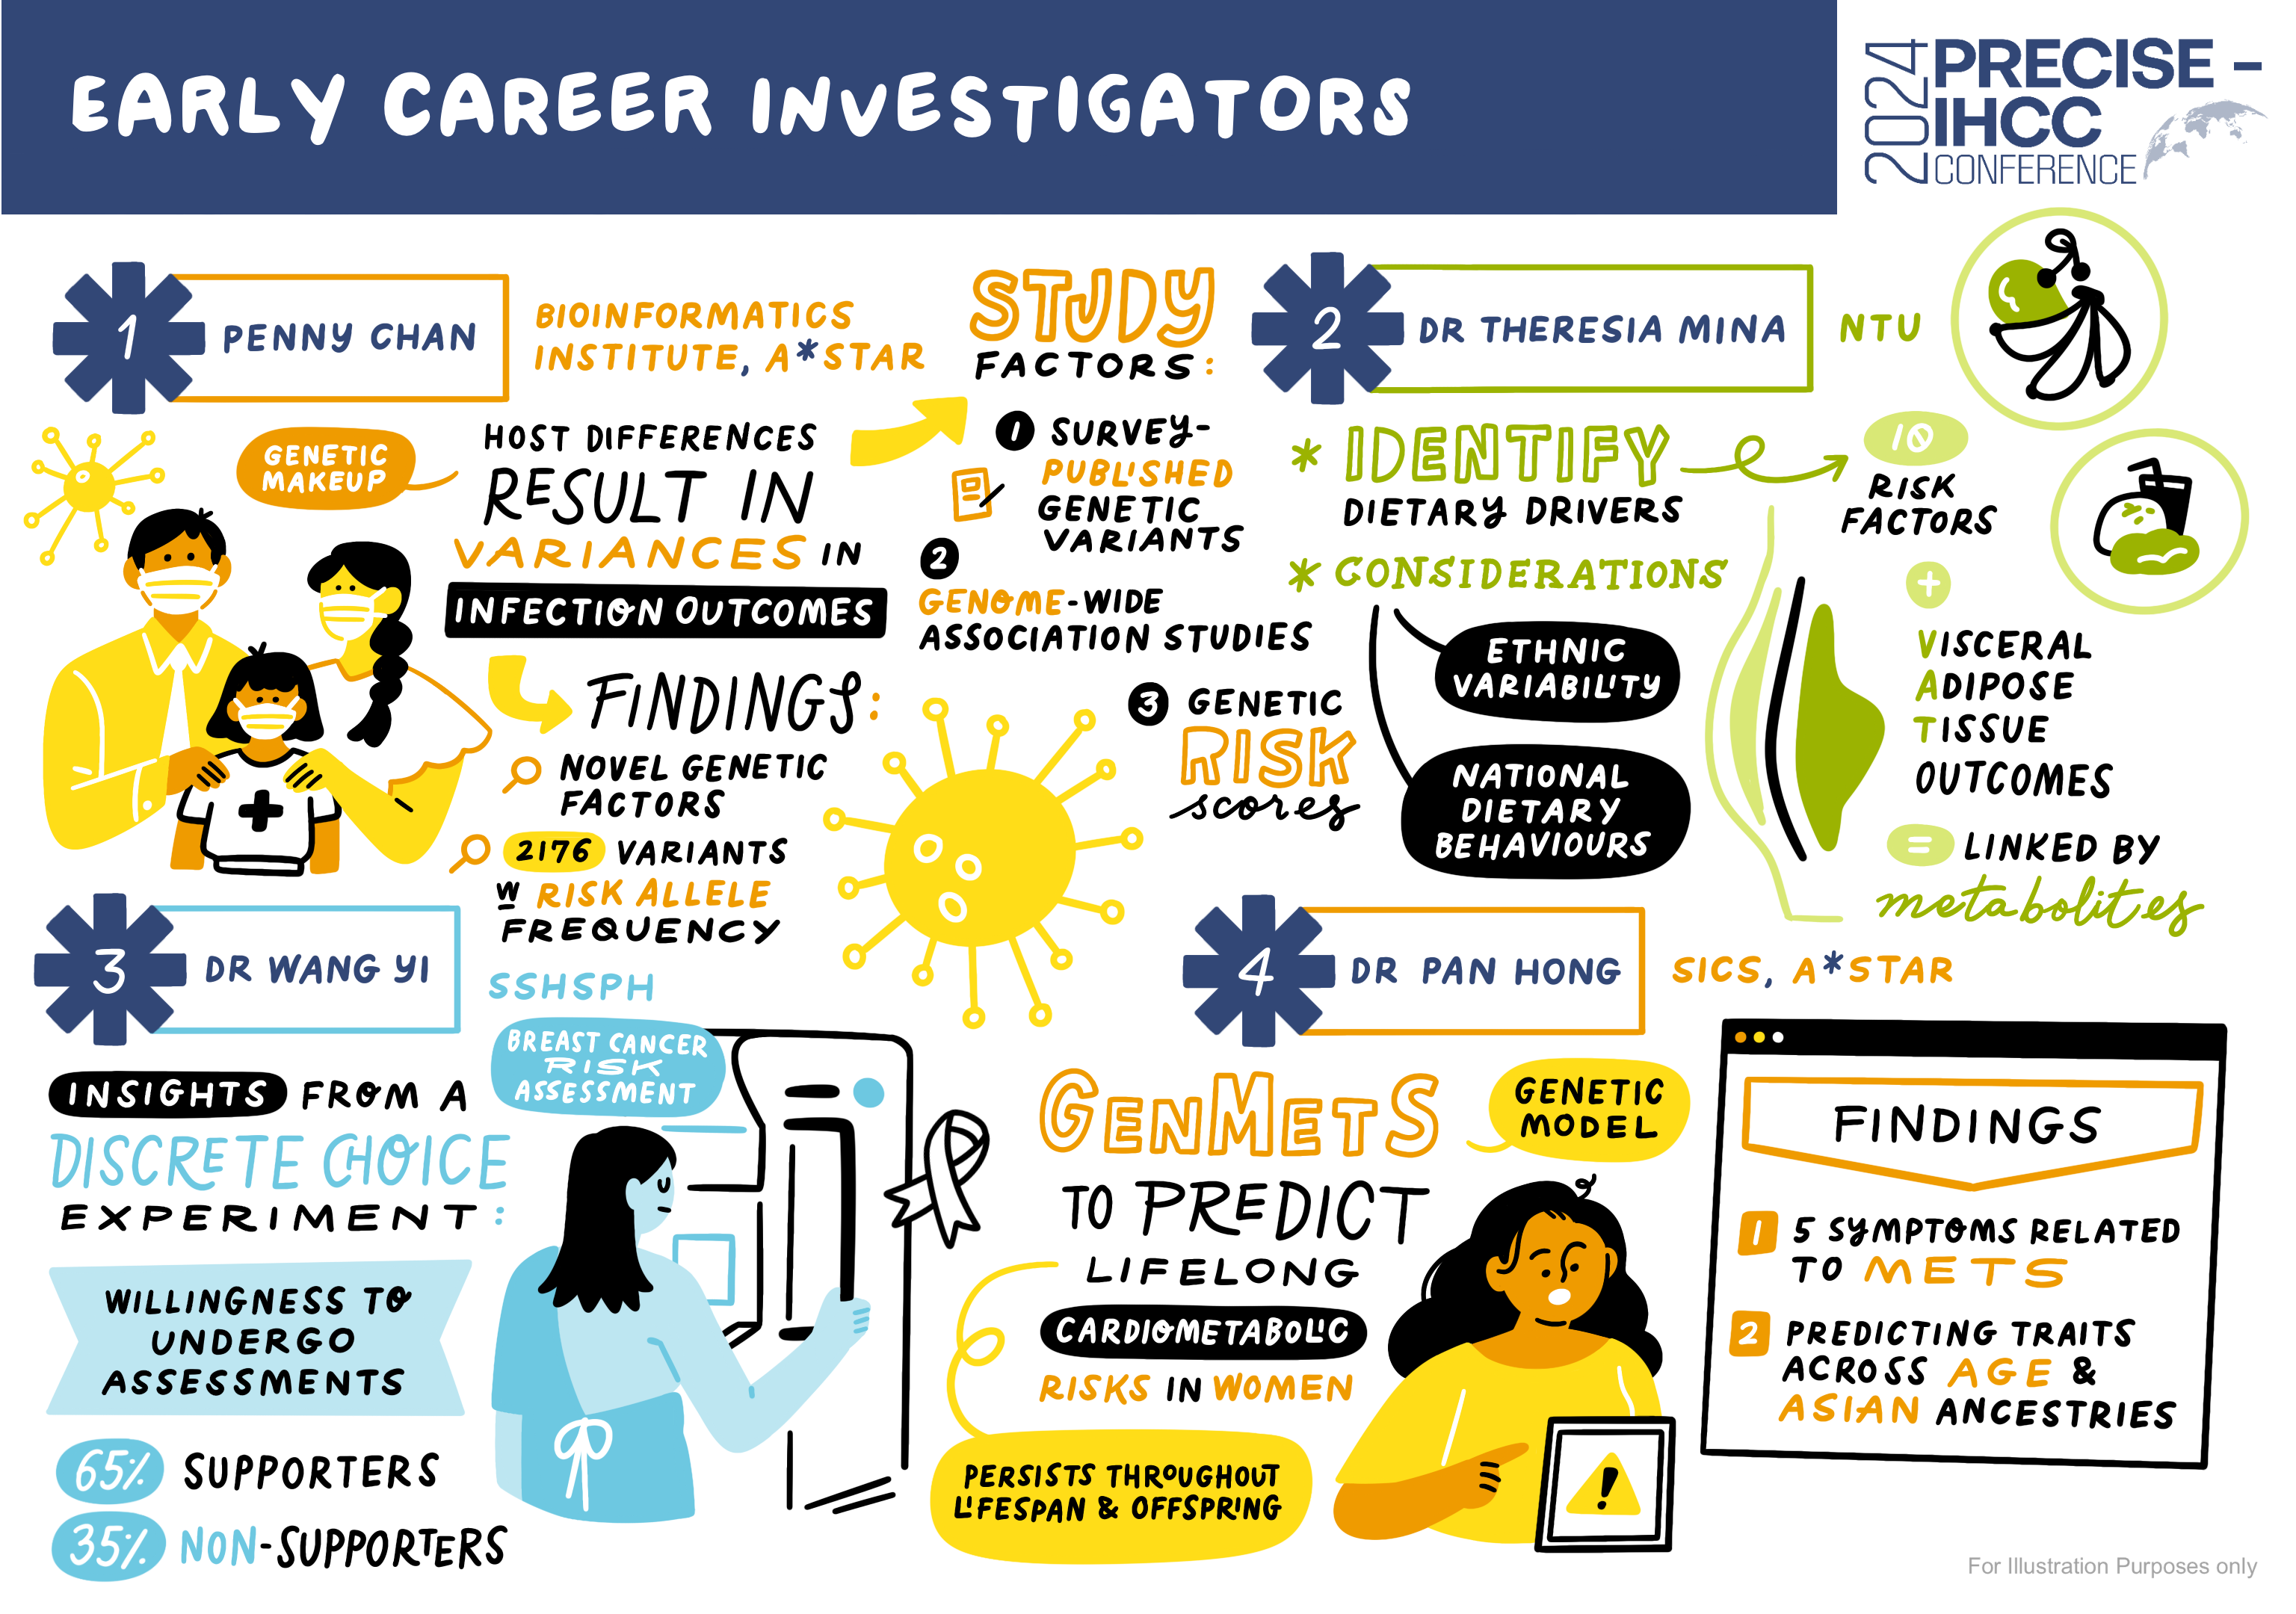 EARLY CAREER INVESTIGATORS
2024
PRECISE –
IHCC
CONFERENCE
1
PENNY CHAN
BIOINFORMATICS
INSTITUTE, A*STAR
GENETIC
MAKEUP
HOST DIFFERENCES
RESULT IN
VARIANCES IN
INFECTION OUTCOMES
FINDINGS:
NOVEL GENETIC
FACTORS
2176 VARIANTS
W RISK ALLELE
FREQUENCY
STUDY
FACTORS:
1 SURVEY-
PUBLISHED
GENETIC
VARIANTS
2
GENOME-WIDE
ASSOCIATION STUDIES
3 GENETIC
RISK
scores
2
DR THERESIA MINA
NTU
* IDENTIFY
DIETARY DRIVERS
* CONSIDERATIONS
ETHNIC
VARIABILITY
NATIONAL
DIETARY
BEHAVIOURS
10
RISK
FACTORS
+
VISCERAL
ADIPOSE
TISSUE
OUTCOMES
= LINKED BY
metabolites
3
DR WANG YI
SSHSPH
BREAST CANCER
RISK
ASSESSMENT
INSIGHTS FROM A
DISCRETE CHOICE
EXPERIMENT:
WILLINGNESS TO
UNDERGO
ASSESSMENTS
65% SUPPORTERS
35% NON-SUPPORTERS
4
DR PAN HONG
SICS, A*STAR
GENMETS
GENETIC
MODEL
TO PREDICT
LIFELONG
CARDIOMETABOLIC
RISKS IN WOMEN
PERSISTS THROUGHOUT
LIFESPAN & OFFSPRING
!
FINDINGS
1 5 SYMPTOMS RELATED
TO METS
2 PREDICTING TRAITS
ACROSS AGE &
ASIAN ANCESTRIES
For Illustration Purposes only